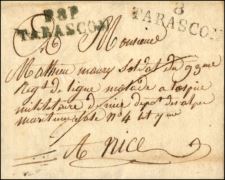 P.8.P
TARASCON
8
TARASCON
A Monsieur
Mathieu maury Soldat du 93me
Regt de ligne malade a lospice
militaire de nice dept des alpes
maritime Sale n° 4
A nice